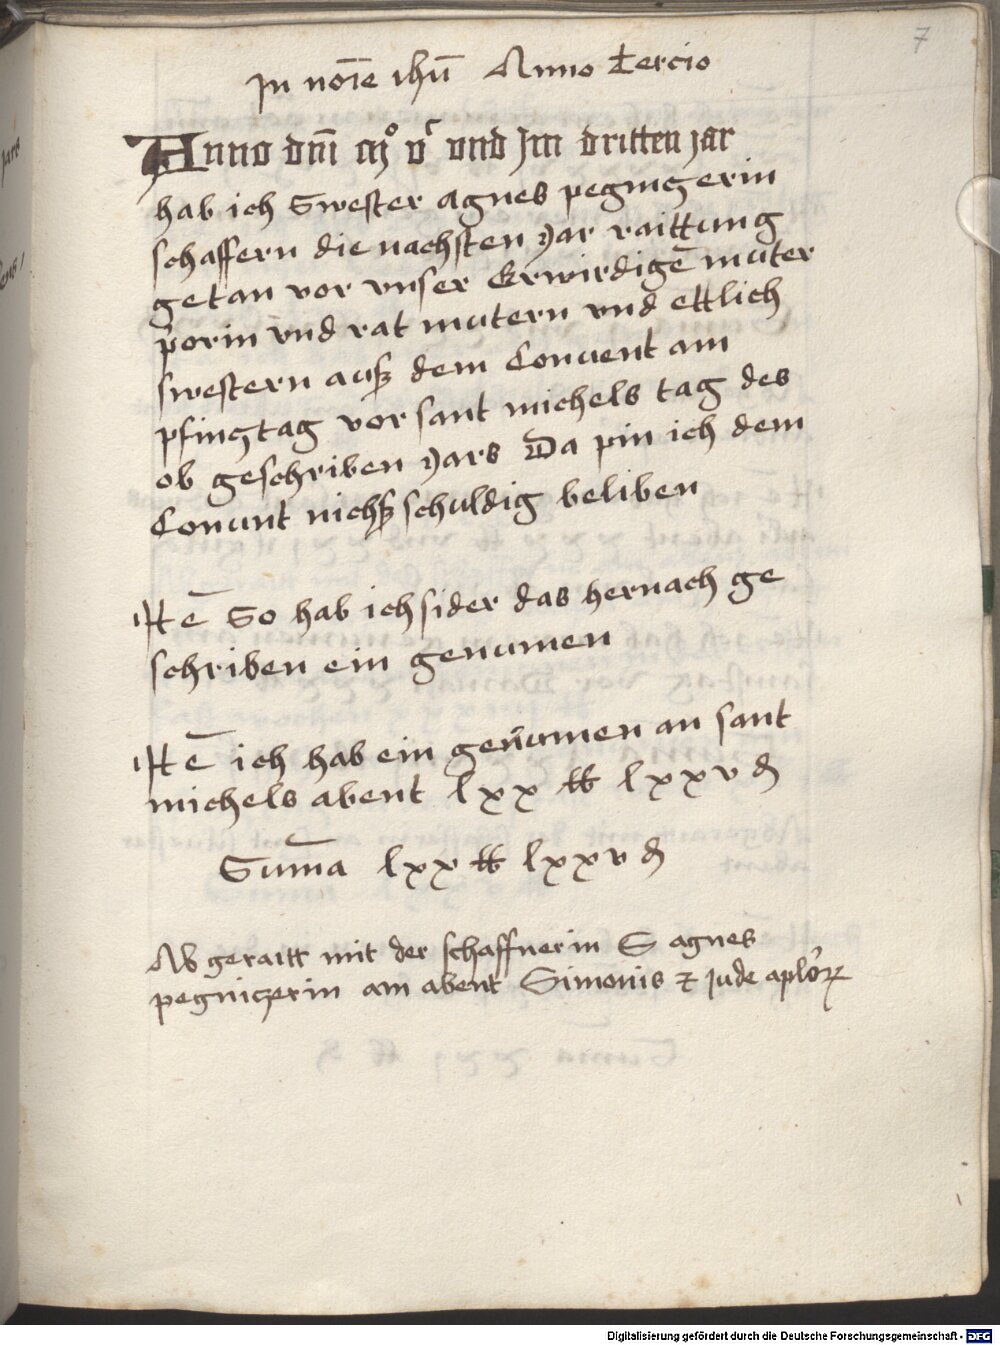 7
In noīe ihū Anno Tercio
Anno dn̄i mº vᶜ vnd Im dritten Jar
hab ich Swester Agnes pegniczerin
schaffern die nachsten yar raittung
getan vor vnser Erwirdigē muter
p̄orin vnd rat mutern vnd ettlich
swestern ausz dem Conuent am
pfincztag vor sant michels tag des
ob geschriben yars Da pin ich dem
Conunt nichsz schuldig beliben
Itē So hab ich sider das hernach ge
schriben ein genumen
Itē ich hab ein genumen an sant
michels abent lxx ℔ lxxv ₰
Sum̄a lxx ℔ lxxv ₰
Ab geraitt mit der schaffnerin S agnes
pegniczerin am abent Simonis ⁊ Jude aplōꝝ
Digitalisierung gefördert durch die Deutsche Forschungsgemeinschaft - DFG